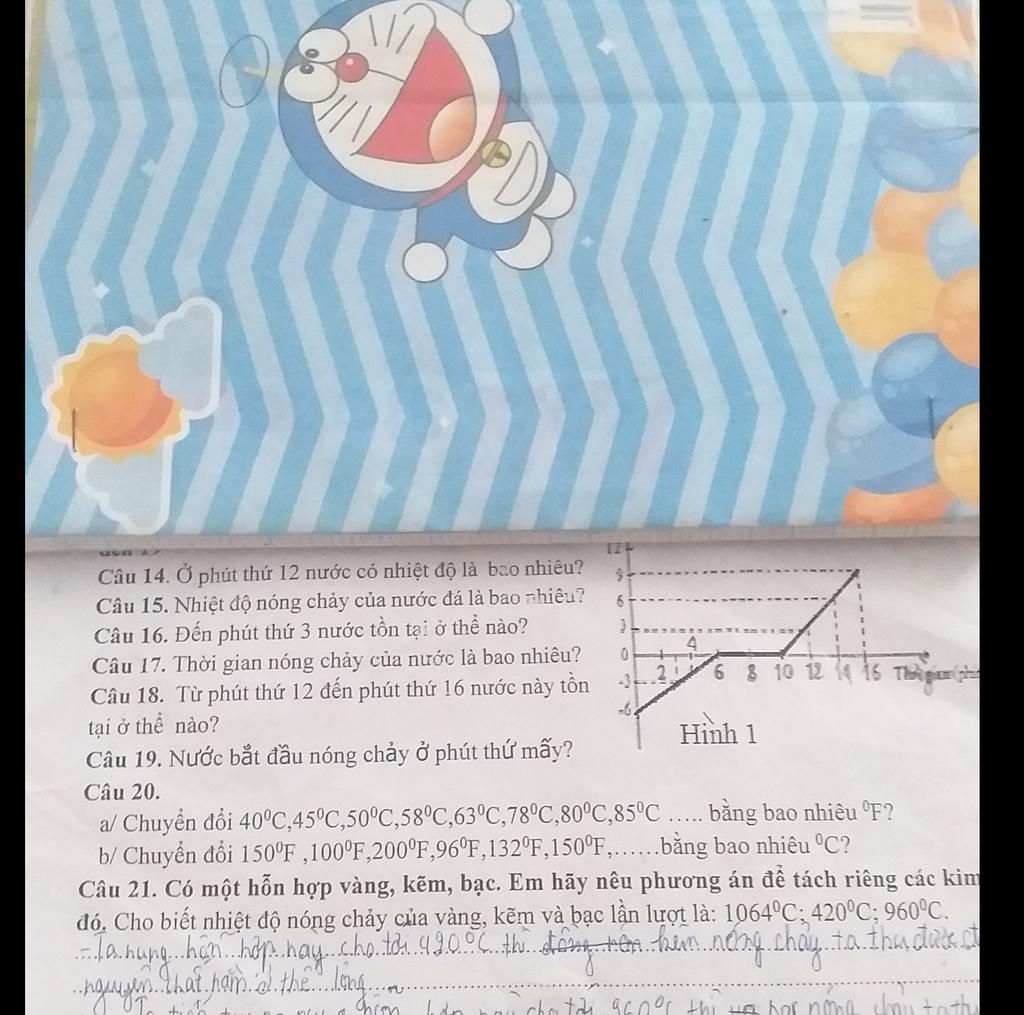 Câu 14. Ở phút thứ 12 nước có nhiệt độ là bao nhiêu?
Câu 15. Nhiệt độ nóng chảy của nước đá là bao nhiêu?
Câu 16. Đến phút thứ 3 nước tồn tại ở thể nào?
Câu 17. Thời gian nóng chảy của nước là bao nhiêu?
Câu 18. Từ phút thứ 12 đến phút thứ 16 nước này tồn
tại ở thể nào?
Câu 19. Nước bắt đầu nóng chảy ở phút thứ mấy?
12
9
6
3
0
-3
-6
4
2 6 8 10 12 14 16 Thời gian
Hình 1
Câu 20.
a/ Chuyển đổi 40⁰C,45⁰C,50⁰C,58⁰C,63⁰C,78⁰C,80⁰C,85⁰C ..... bằng bao nhiêu ⁰F?
b/ Chuyển đổi 150⁰F ,100⁰F,200⁰F,96⁰F,132⁰F,150⁰F,......bằng bao nhiêu ⁰C?
Câu 21. Có một hỗn hợp vàng, kẽm, bạc. Em hãy nêu phương án để tách riêng các kim
đó. Cho biết nhiệt độ nóng chảy của vàng, kẽm và bạc lần lượt là: 1064⁰C; 420⁰C; 960⁰C.
- Ta nung hỗn hợp này cho tới 420⁰C thì kẽm nóng chảy ta thu được
nguyên chất kẽm ở thể lỏng
cho tới 960⁰C thì bạc nóng chảy ta thu